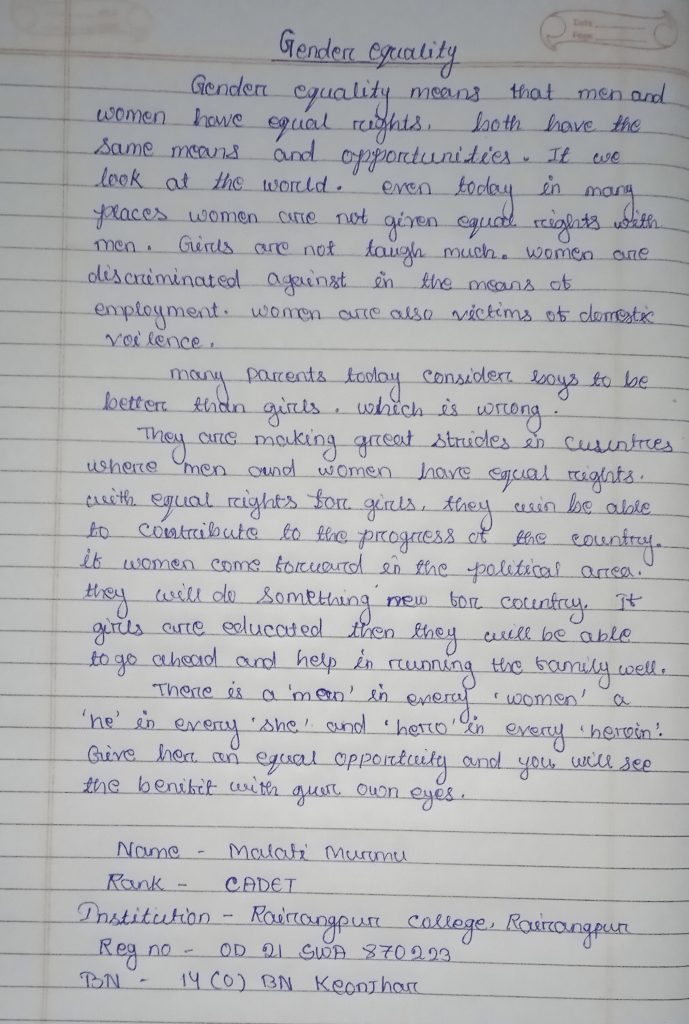 Date
Page
Gender equality
Gender equality means that men and
women have equal rights. both have the
same means and opportunities. If we
look at the world. even today in many
places women are not given equal rights with
men. Girls are not taugh much. women are
discriminated against in the means of
employment. women are also victims of domestic
voilence.
many parents today consider boys to be
better than girls. which is wrong.
They are making great strides in
where men and women have equal rights.
with equal rights for girls, they will be able
to contribute to the progress of the country.
if women come forward in the political area.
they will do something new for country. If
girls are educated then they will be able
to go ahead and help in running the family well.
There is a 'man' in every 'women' a
'he' in every 'she' and 'hero' in every 'heroin'.
Give her an equal and you will see
the benifit with own eyes.
Name - Malati Murmu
Rank - CADET
Institution - Rairangpur college, Rairangpur
Reg no - OD 21 SWA 870223
BN - 14 (O) BN Keonjhar